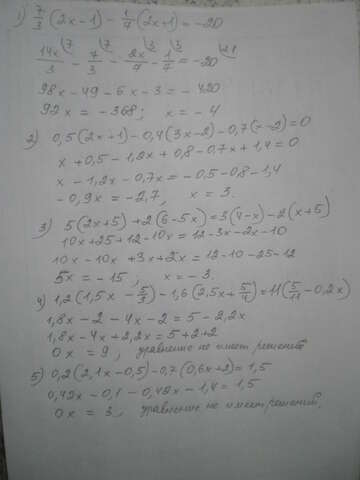 1) 7/3 (2x-1) - 1/7 (2x+1) = -20
14x/3 ⁷ - 7/3 ⁷ - 2x/7 ³ - 1/7 ³ = -20 ²¹
98x - 49 - 6x - 3 = -420
92x = -368; x = -4
2) 0,5(2x+1) - 0,4(3x-2) - 0,7(x-2) = 0
x + 0,5 - 1,2x + 0,8 - 0,7x + 1,4 = 0
x - 1,2x - 0,7x = -0,5 - 0,8 - 1,4
-0,9x = -2,7, x = 3.
3) 5(2x+5) + 2(6-5x) = 3(4-x) - 2(x+5)
10x + 25 + 12 - 10x = 12 - 3x - 2x - 10
10x - 10x + 3x + 2x = 12 - 10 - 25 - 12
5x = -15, x = -3.
4) 1,2(1,5x - 5/3) - 1,6(2,5x + 5/4) = 11(5/11 - 0,2x)
1,8x - 2 - 4x - 2 = 5 - 2,2x
1,8x - 4x + 2,2x = 5 + 2 + 2
0x = 9, уравнение не имеет решений
5) 0,2(2,1x - 0,5) - 0,7(0,6x + 2) = 1,5
0,42x - 0,1 - 0,42x - 1,4 = 1,5
0x = 3, уравнение не имеет решений.